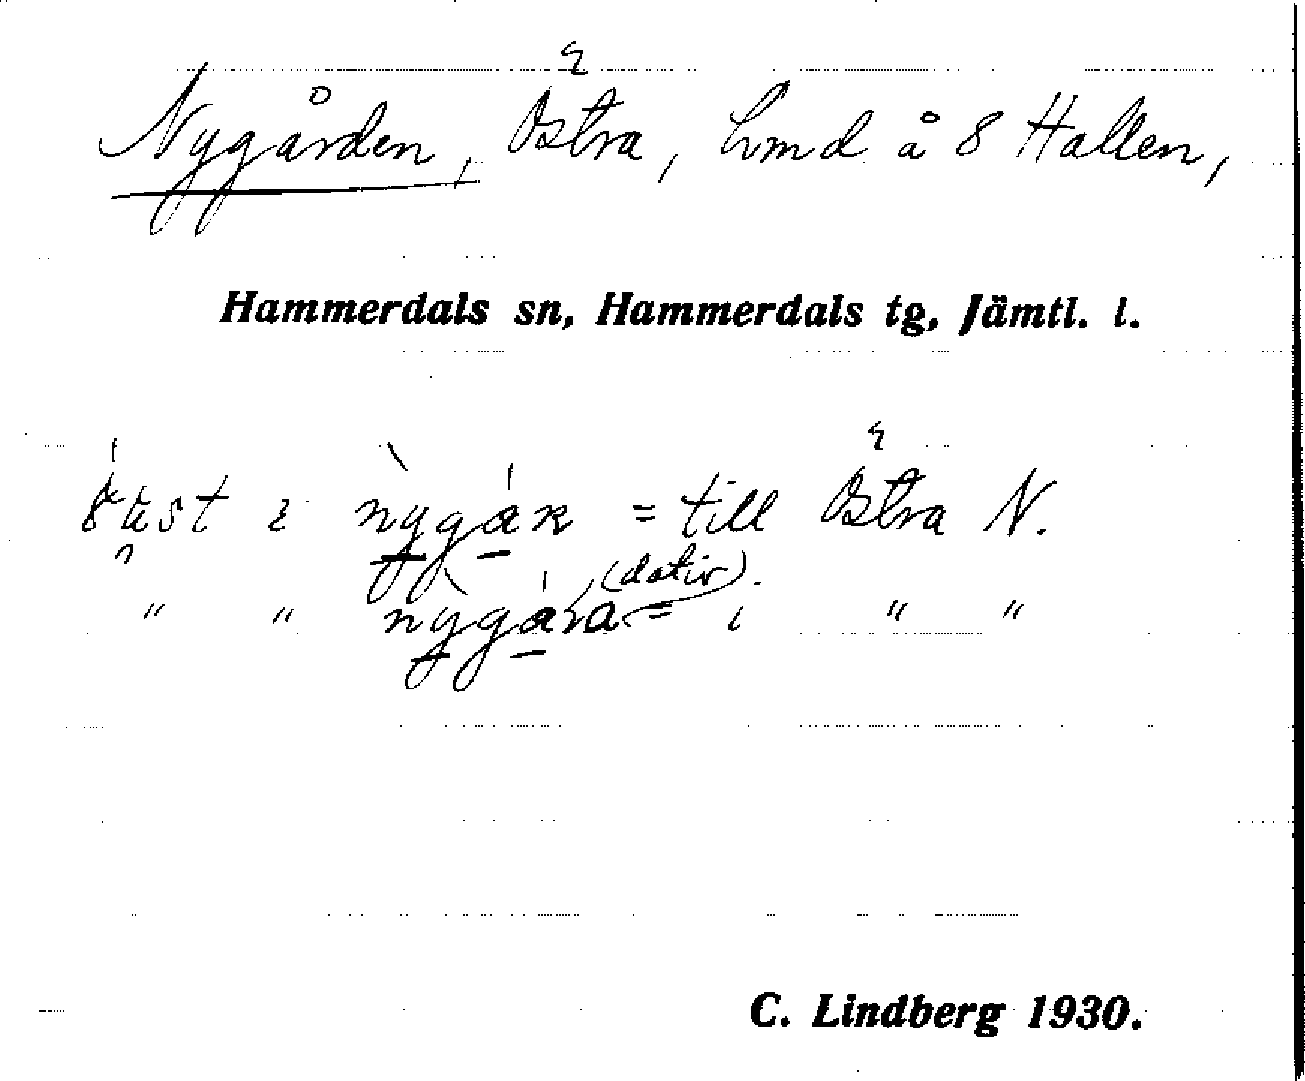 Nygården, Östra, hmd å 8 Hallen,
Hammerdals sn, Hammerdals tg, Jämtl. l.
i nygáṉ = till Östra N.
(dativ).
" " nygára = i " "
C. Lindberg 1930.